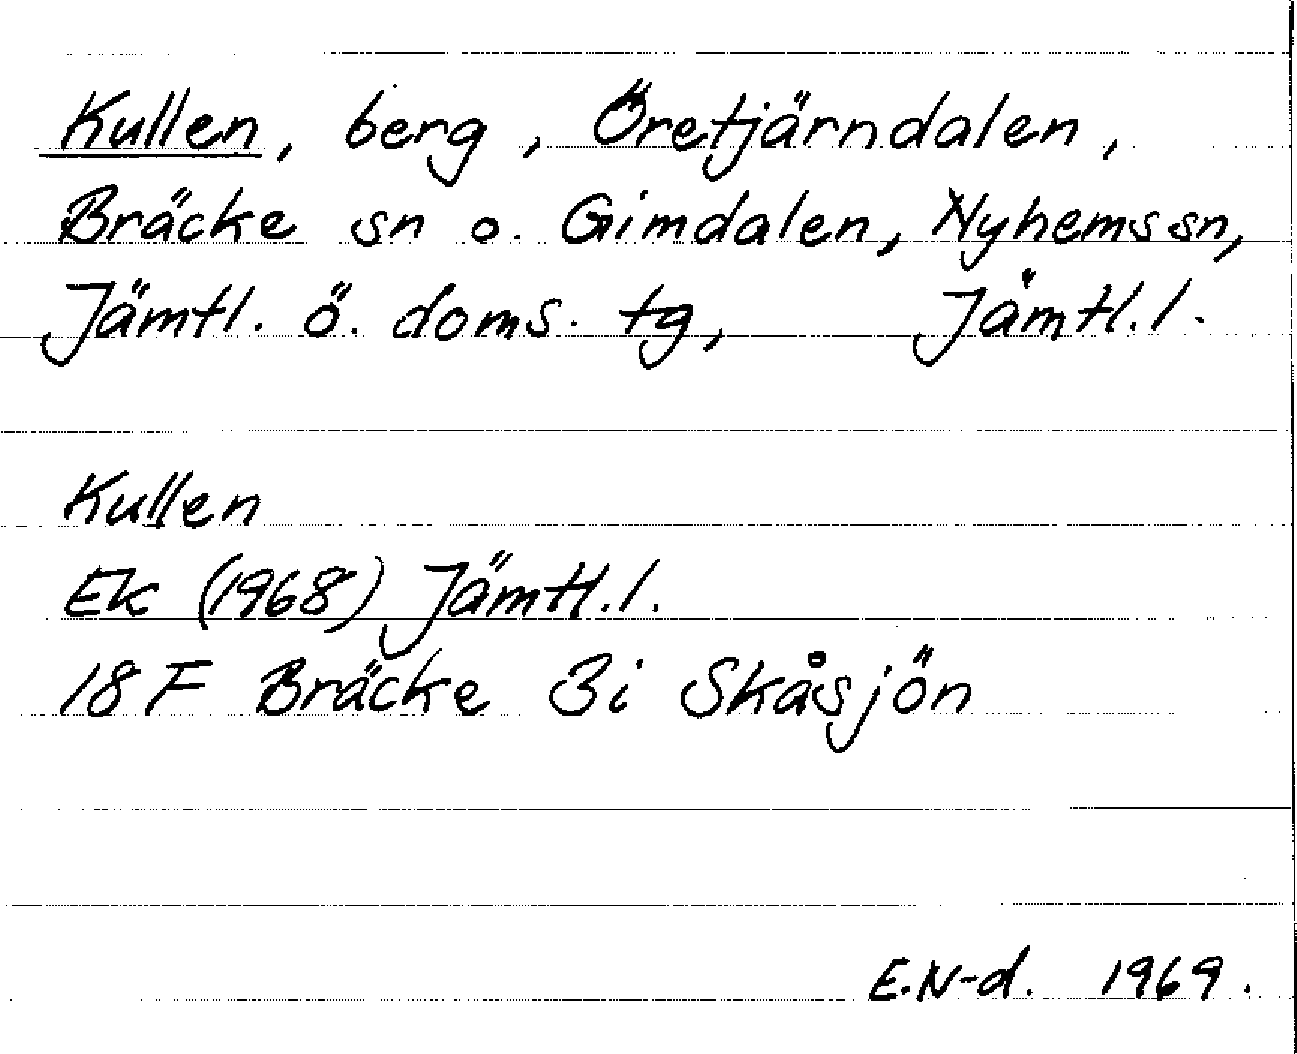 Kullen, berg, Öretjärndalen,
Bräcke sn o. Gimdalen, Nyhems sn,
Jämtl. ö. doms. tg, Jämtl. l.
Kullen
Ek (1968) Jämtl. l.
18 F Bräcke 3i Skåsjön
E. N-d. 1969.